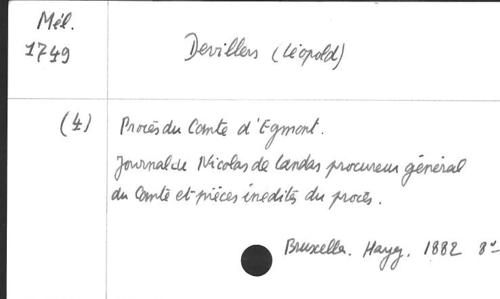 Mél.
1749
Devillers (Léopold)
(4) Procès du Comte d'Egmont.
Journal de Nicolas de Landas procureur général
du Comté et pièces inédites du procès.
Bruxelles. Hayez. 1882 8º